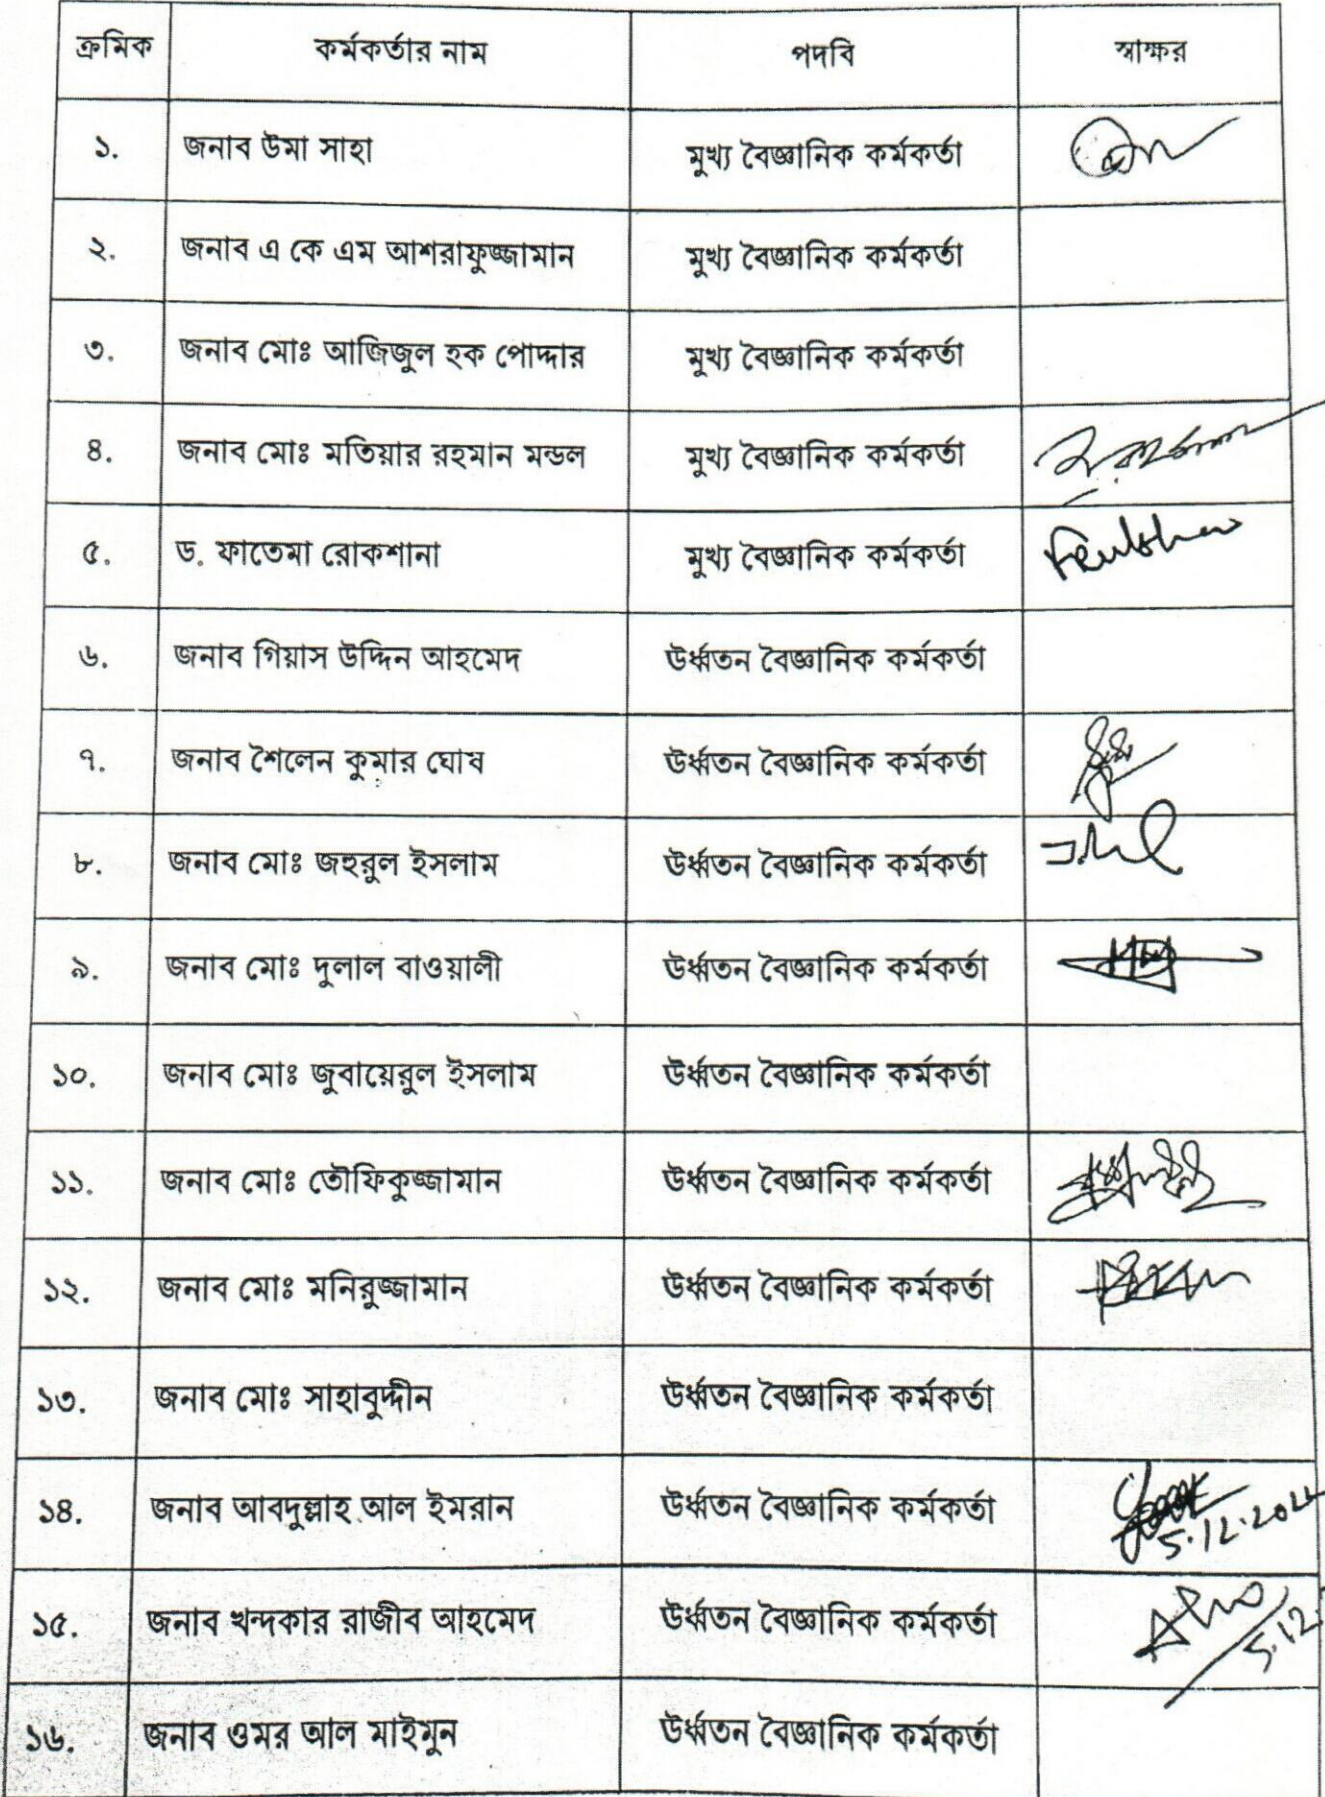 ক্রমিক কর্মকর্তার নাম পদবি স্বাক্ষর
১. জনাব উমা সাহা মুখ্য বৈজ্ঞানিক কর্মকর্তা
২. জনাব এ কে এম আশরাফুজ্জামান মুখ্য বৈজ্ঞানিক কর্মকর্তা
৩. জনাব মোঃ আজিজুল হক পোদ্দার মুখ্য বৈজ্ঞানিক কর্মকর্তা
৪. জনাব মোঃ মতিয়ার রহমান মন্ডল মুখ্য বৈজ্ঞানিক কর্মকর্তা
৫. ড. ফাতেমা রোকশানা মুখ্য বৈজ্ঞানিক কর্মকর্তা
৬. জনাব গিয়াস উদ্দিন আহমেদ ঊর্ধ্বতন বৈজ্ঞানিক কর্মকর্তা
৭. জনাব শৈলেন কুমার ঘোষ ঊর্ধ্বতন বৈজ্ঞানিক কর্মকর্তা
৮. জনাব মোঃ জহুরুল ইসলাম ঊর্ধ্বতন বৈজ্ঞানিক কর্মকর্তা
৯. জনাব মোঃ দুলাল বাওয়ালী ঊর্ধ্বতন বৈজ্ঞানিক কর্মকর্তা
১০. জনাব মোঃ জুবায়েরুল ইসলাম ঊর্ধ্বতন বৈজ্ঞানিক কর্মকর্তা
১১. জনাব মোঃ তৌফিকুজ্জামান ঊর্ধ্বতন বৈজ্ঞানিক কর্মকর্তা
১২. জনাব মোঃ মনিরুজ্জামান ঊর্ধ্বতন বৈজ্ঞানিক কর্মকর্তা
১৩. জনাব মোঃ সাহাবুদ্দীন ঊর্ধ্বতন বৈজ্ঞানিক কর্মকর্তা
১৪. জনাব আবদুল্লাহ আল ইমরান ঊর্ধ্বতন বৈজ্ঞানিক কর্মকর্তা
১৫. জনাব খন্দকার রাজীব আহমেদ ঊর্ধ্বতন বৈজ্ঞানিক কর্মকর্তা 5.12.
১৬. জনাব ওমর আল মাইমুন ঊর্ধ্বতন বৈজ্ঞানিক কর্মকর্তা